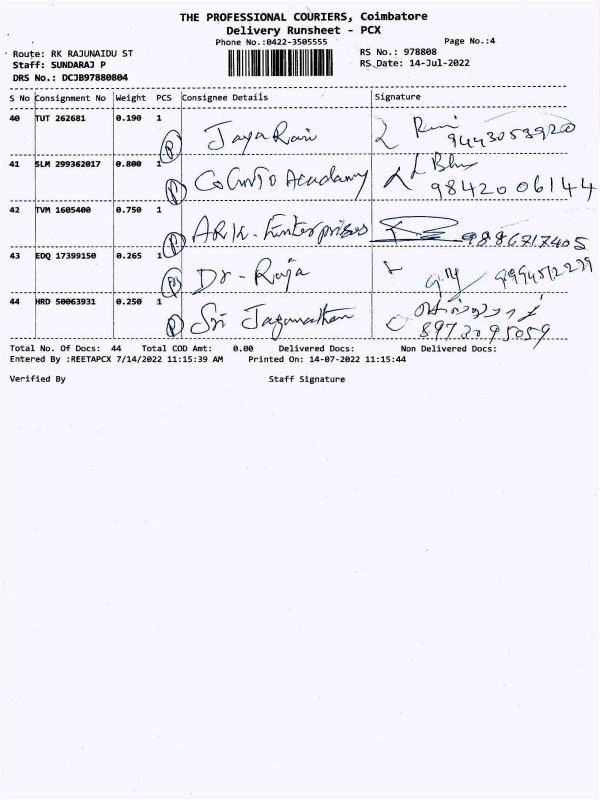 THE PROFESSIONAL COURIERS, Coimbatore
Delivery Runsheet - PCX
Phone No.:0422-3505555 Page No.:4
Route: RK RAJUNAIDU ST RS No.: 978808
Staff: SUNDARAJ P RS Date: 14-Jul-2022
DRS No.: DCJB97880804
S No Consignment No Weight PCS Consignee Details Signature
40 TUT 262681 0.190 1 P Jaya Rani 9443053920
41 SLM 299362017 0.800 1 P Academy 9842006144
42 TVM 1605400 0.750 1 P Enterprises 9886717405
43 EDQ 17399150 0.265 1 P Dr - Raja
44 HRD 50063931 0.250 1 P Sri Jaganathan 8973095059
Total No. Of Docs: 44 Total COD Amt: 0.00 Delivered Docs: Non Delivered Docs:
Entered By :REETAPCX 7/14/2022 11:15:39 AM Printed On: 14-07-2022 11:15:44
Verified By Staff Signature